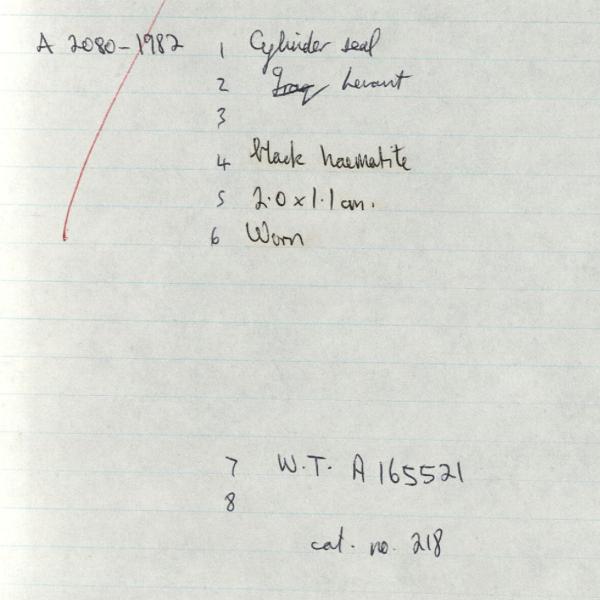 A 2080-1982 1 Cylinder seal
2 Iraq Levant
3
4 black haematite
5 2.0 x 1.1 cm.
6 Worn
7 W.T. A165521
8
cat. no. 218